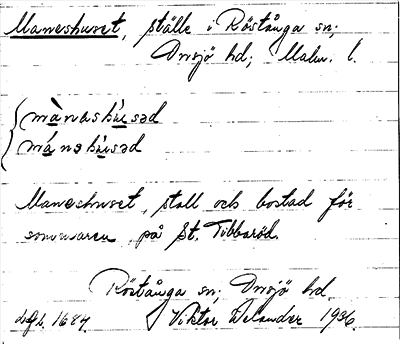 Maneshuset, ställe i Röstånga sn;
Onsjö hd; Malm. l.
mànashùsəd
mánəhùsəd
Maneshuset, stall och bostad för
sommaren på St. Tibbaröd.
Röstånga sn; Onsjö hd.
1684. Viktor Welander 1936.